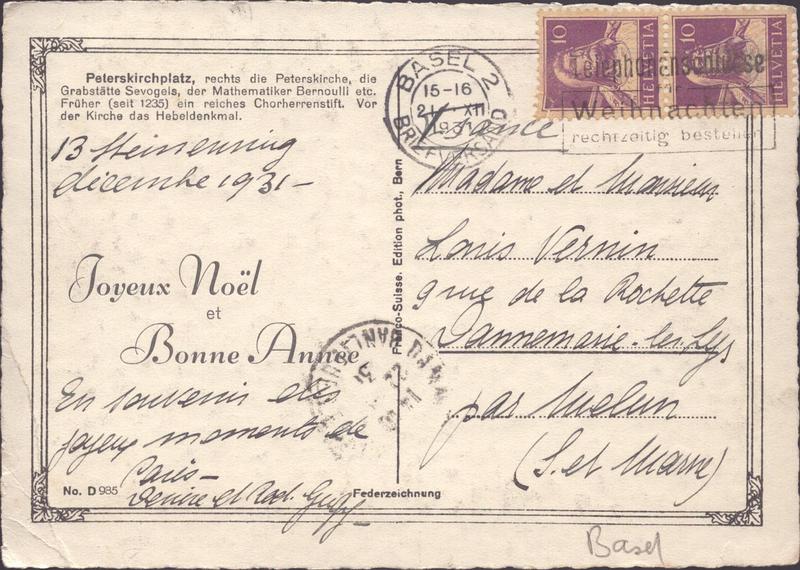 Peterskirchplatz, rechts die Peterskirche, die
Grabstätte Sevogels, der Mathematiker Bernoulli etc.
Früher (seit 1235) ein reiches Chorherrenstift. Vor
der Kirche das Hebeldenkmal.
13 Steinenring
décembre 1931-
Joyeux Noël
et
Bonne Année
En souvenir des
joyeux moments de
Paris-
Denise et Rod.
No. D 985
Federzeichnung
Franco-Suisse. Edition phot., Bern
BASEL 2
15-16
XII
1931
BRIEFVERSAND
10 HELVETIA
10 HELVETIA
Telephonanschlüsse
Weihnachten
rechtzeitig bestellen
France
Madame et Monsieur
Louis Vernin
9 rue de la Rochette
Dannemarie-les-Lys
par Melun
(S. et Marne)
Basel